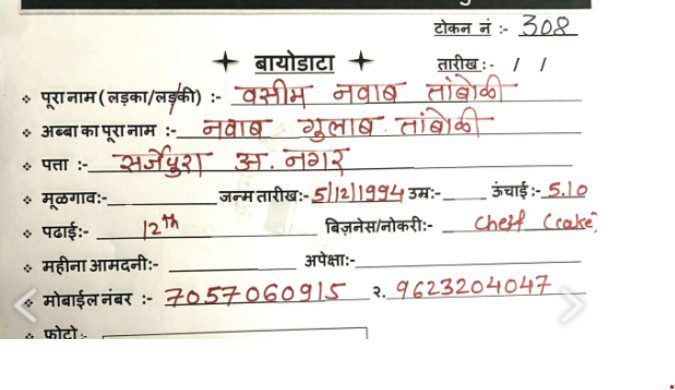 टोकन नं :- 308
बायोडाटा
तारीख :- / /
पूरा नाम (लड़का/लड़की) :- वसीम नवाब तांबोळी
अब्बा का पूरा नाम :- नवाब गुलाब तांबोळी
पत्ता :- सर्जेपुरा अ. नगर
मूळगाव:- जन्म तारीख:- 5/12/1994 उम:- ऊंचाई :- 5.10
पढाई:- 12th बिज़नेस/नोकरी:- Cheff (cake)
महीना आमदनी:- अपेक्षा:-
मोबाईल नंबर :- 7057060915 २. 9623204047
फोटो :-